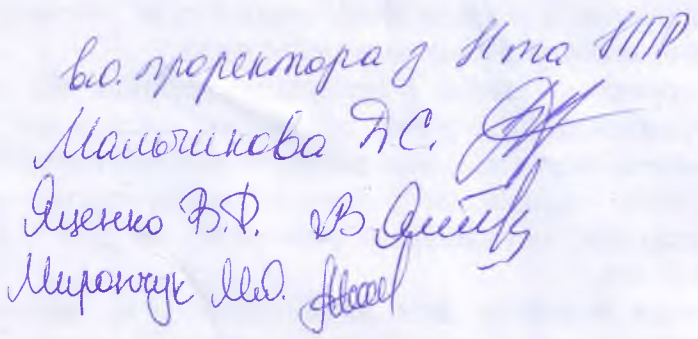 в.о. проректора з Н та НПР
Мальчикова Д.С.
Яценко В.Ф.
Мирончук М.Ю.